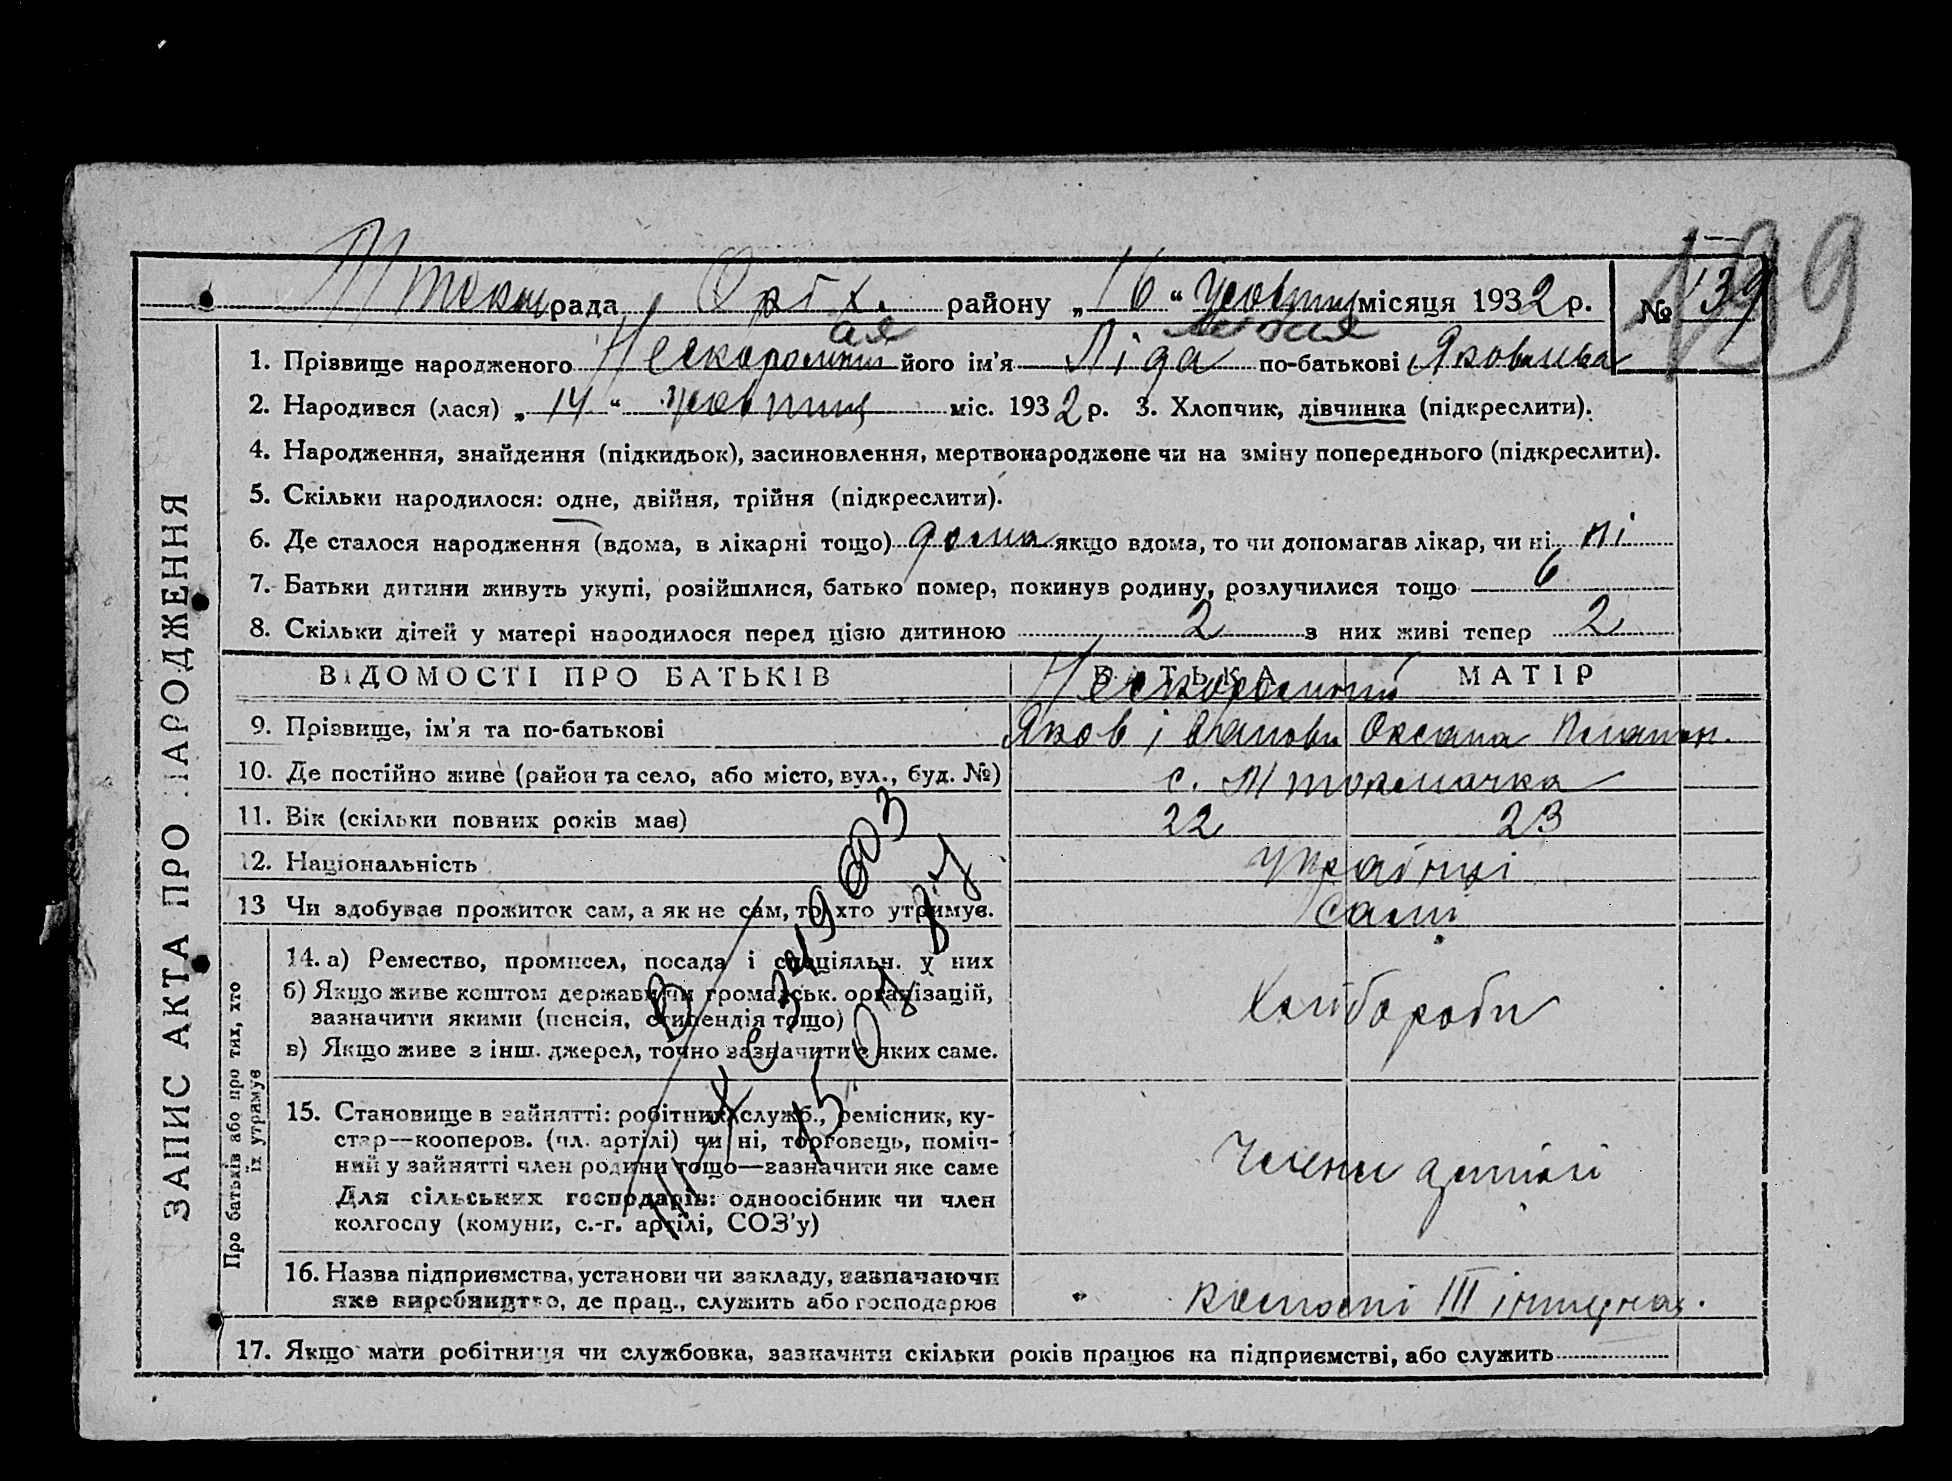 139
рада району „ 16 “ жовтня місяця 1932 р. № 139
ая
1. Прізвище народженого Нескоромний його ім'я Ліда по-батькові Яковлівна
2. Народився (лася) „ 14 “ жовтня міс. 1932 р. 3. Хлопчик, дівчинка (підкреслити).
4. Народження, знайдення (підкидьок), засиновлення, мертвонароджене чи на зміну попереднього (підкреслити).
5. Скільки народилося: одне, двійня, трійня (підкреслити).
6. Де сталося народження (вдома, в лікарні тощо) дома якщо вдома, то чи допомагав лікар, чи ні ні
7. Батьки дитини живуть укупі, розійшлися, батько помер, покинув родину, розлучилися тощо
8. Скільки дітей у матері народилося перед цією дитиною 2 з них живі тепер 2
ВІДОМОСТІ ПРО БАТЬКІВ БАТЬКА МАТІР
Нескоромний
9. Прізвище, ім'я та по-батькові Яков Оксана
10. Де постійно живе (район та село, або місто, вул., буд. №) с. М токмачка
11. Вік (скільки повних років має) 22 23
12. Національність Українці
13 Чи здобуває прожиток сам, а як не сам, то хто утримує. Самі
14. а) Ремество, промисел, посада і спеціяльн. у них
б) Якщо живе коштом держави чи громадськ. організацій,
зазначити якими (пенсія, стипендія тощо)
Хлібороби
в) Якщо живе з інш. джерел, точно зазначити з яких саме.
15. Становище в зайнятті: робітник, служб., ремісник, ку-
стар—кооперов. (чл. артілі) чи ні, торговець, поміч-
ний у зайнятті член родини тощо—зазначити яке саме
Члени артілі
Для сільських господарів: одноосібник чи член
колгоспу (комуни, с.-г. артілі, СОЗ'у)
16. Назва підприємства, установи чи закладу, зазначаючи
яке виробництво, де прац., служить або господарює
III
17. Якщо мати робітниця чи службовка, зазначити скільки років працює на підприємстві, або служить
ЗАПИС АКТА ПРО НАРОДЖЕННЯ
Про батьків або про тих, хто
їх утримує